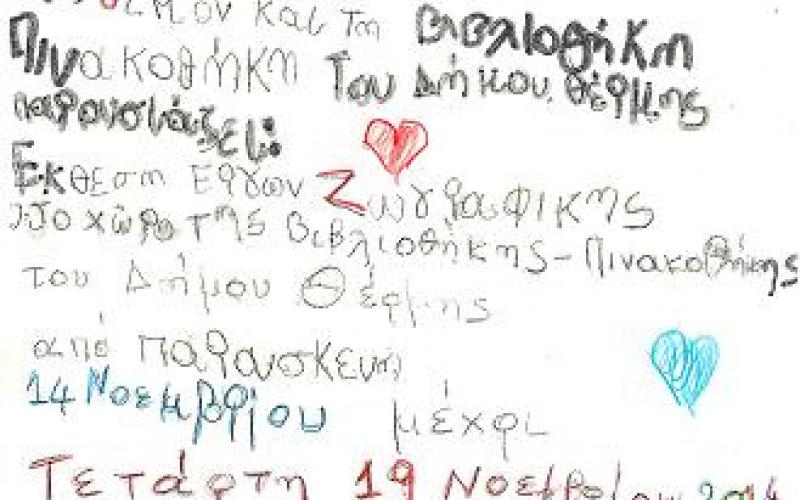 και τη Βιβλιοθήκη
Πινακοθήκη του Δήμου Θέρμης
παρουσιάζει:
Έκθεση Εργων Ζωγραφικης
στο χώρο της Βιβλιοθήκης-Πινακοθήκης
του Δήμου Θέρμης
από παρασκευή
14 Νοεμβρίου μέχρι
Τετάρτη 19 Νοεβρίου 2014